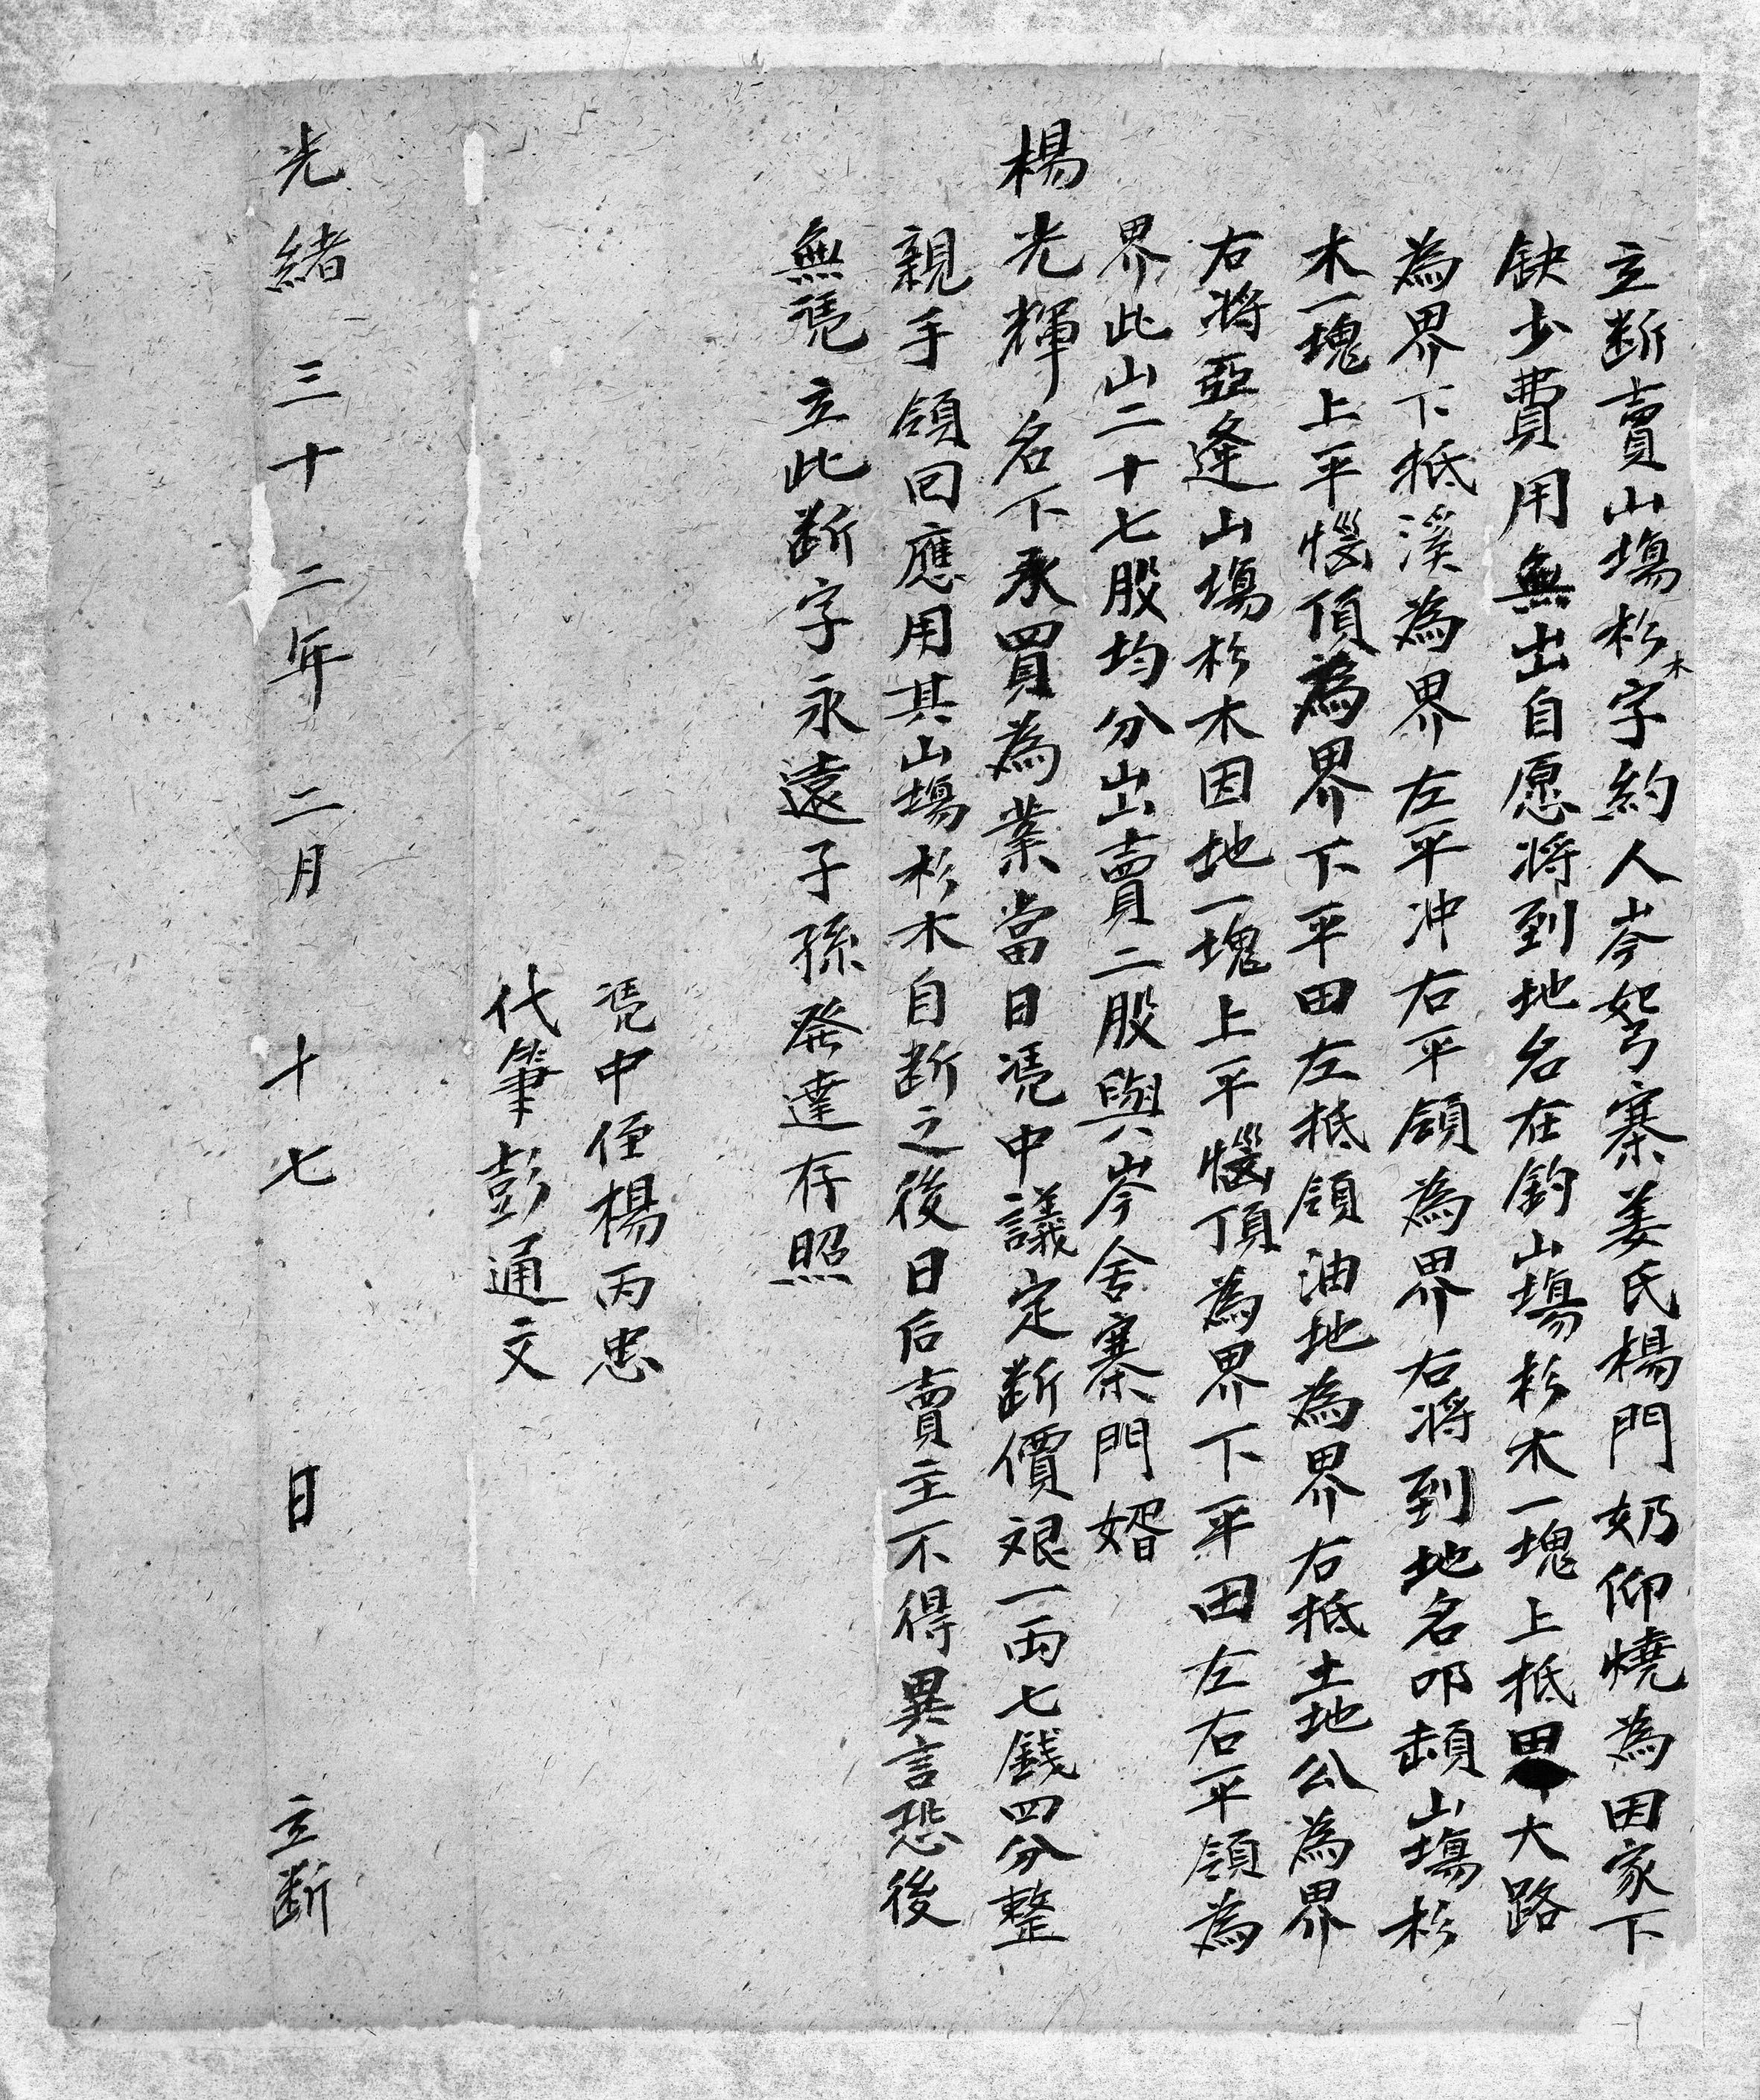 立断賣山塲杉木字約人岑䋈弓寨姜氏楊門奶仰燒為因家下
缺少費用無出自愿将到地名在鈞山塲杉木一塊上抵大路
為界下抵溪為界左平冲右平領為界右将到地名叩頼山塲杉
木一塊上平惱頂為界下平田左抵領油地為界右抵土地公為界
右将亞逢山塲杉木因地一塊上平惱頂為界下平田左右平領為
界此山二十七股均分出賣二股與岑舍寨門婿
楊光輝名下承買為業當日凴中議定断價艮一両七錢四分整
親手領回應用其山塲杉木自断之後日后賣主不得異言恐後
無凴立此断字永遠子孫發達存照
凴中侄楊丙忠
代筆彭通文
光緒三十二年二月十七日立断